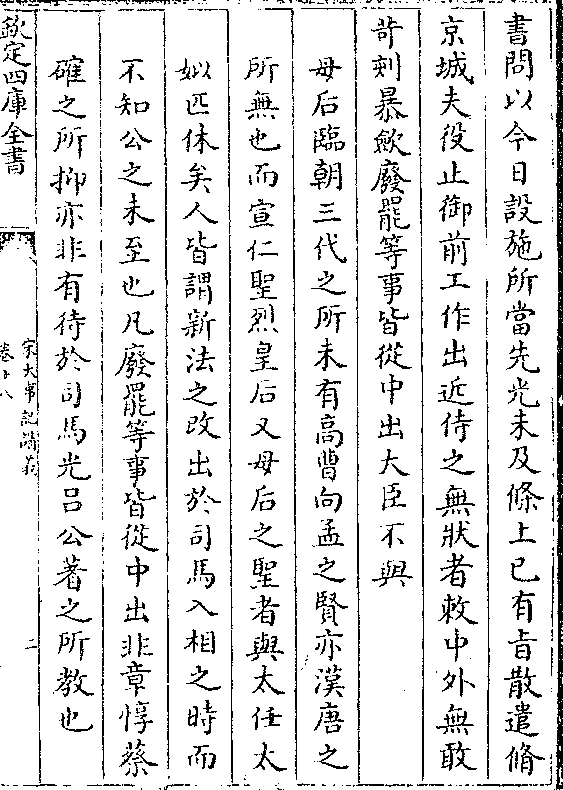 書問以今日設施所當先光未及條上已有㫖散遣脩
京城夫役止御前工作出近侍之無狀者敕中外無敢
苛刻暴歛廢罷等事皆從中出大臣不與
母后臨朝三代之所未有高曹向孟之賢亦漢唐之
所無也而宣仁聖烈皇后又母后之聖者與太任太
姒匹休矣人皆謂新法之改出於司馬入相之時而
不知公之未至也凡廢罷等事皆從中出非章惇蔡
確之所抑亦非有待於司馬光吕公著之所教也
欽定四庫全書
宋大事記講義
卷十八
二